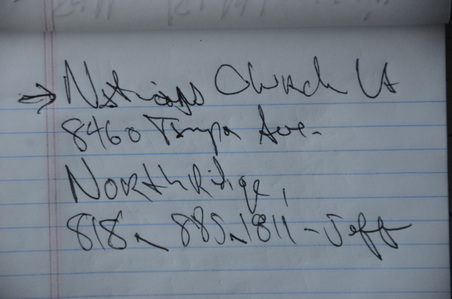 → Nations Church LA
8460 Tampa Ave.
Northridge,
818. 885.1811 - Jeff